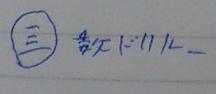 ㊂ 数ドリル_